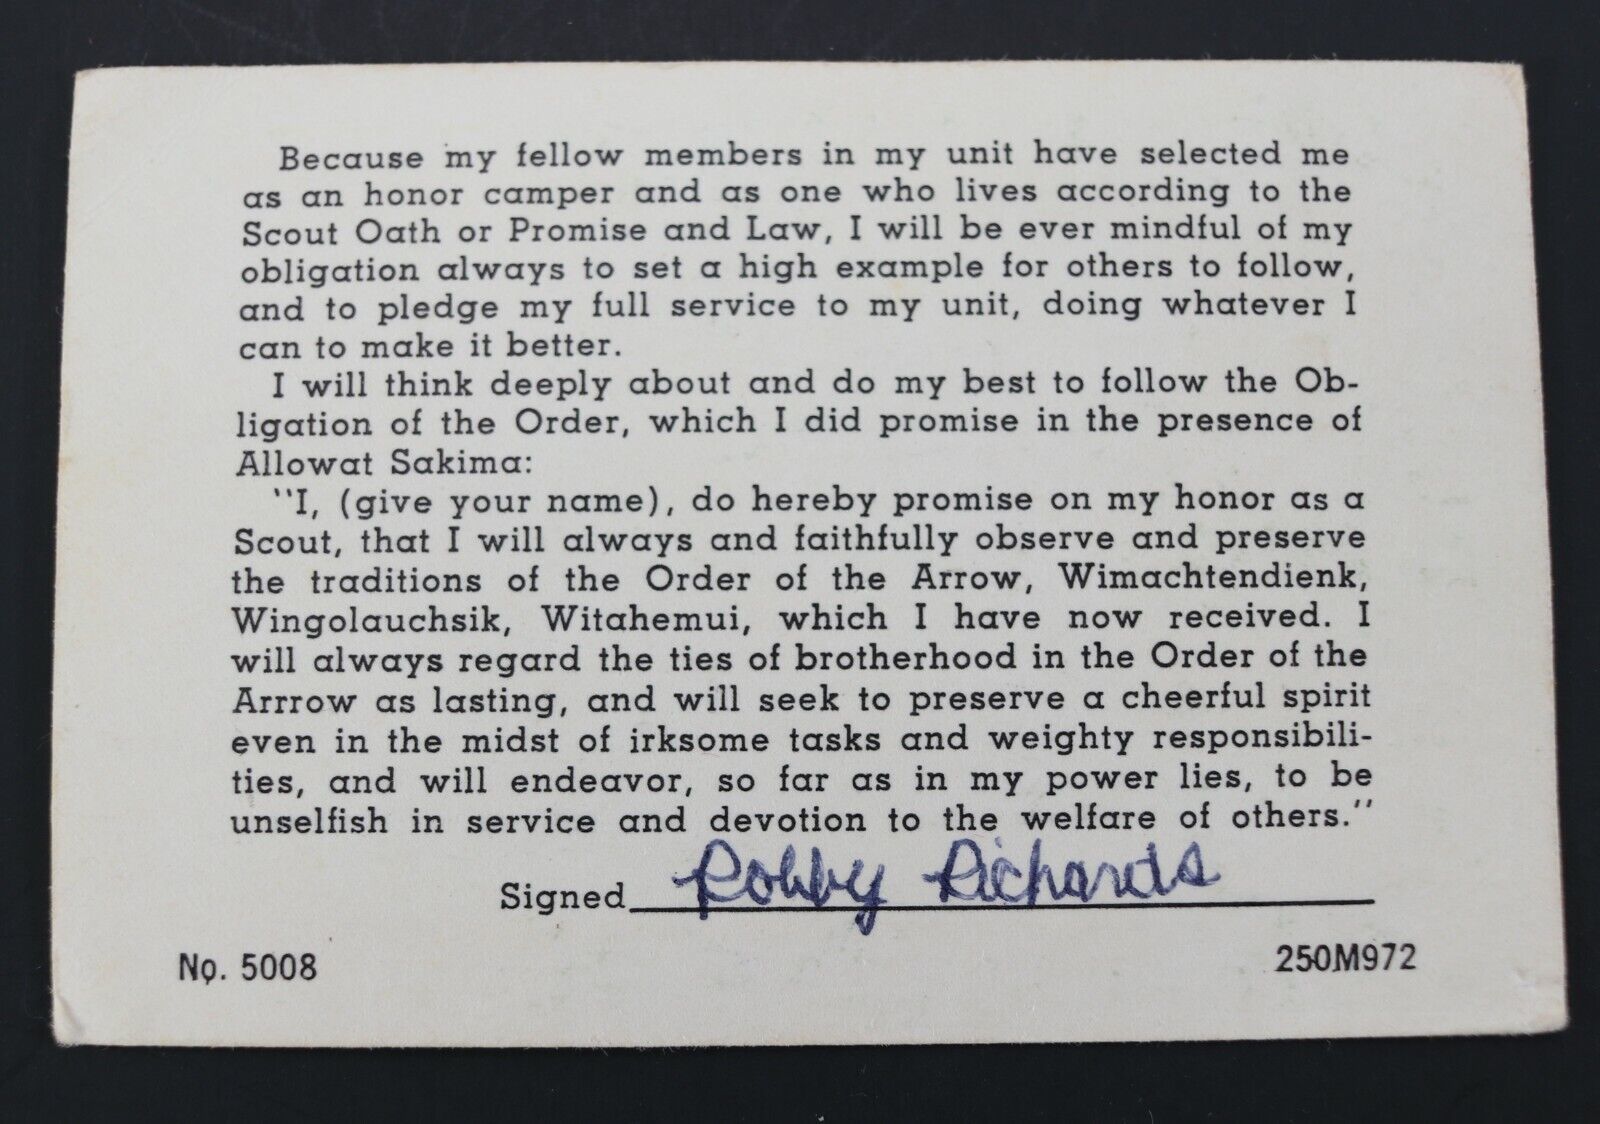 Because my fellow members in my unit have selected me
as an honor camper and as one who lives according to the
Scout Oath or Promise and Law, I will be ever mindful of my
obligation always to set a high example for others to follow,
and to pledge my full service to my unit, doing whatever I
can to make it better.
I will think deeply about and do my best to follow the Ob-
ligation of the Order, which I did promise in the presence of
Allowat Sakima:
"I, (give your name), do hereby promise on my honor as a
Scout, that I will always and faithfully observe and preserve
the traditions of the Order of the Arrow, Wimachtendienk,
Wingolauchsik, Witahemui, which I have now received. I
will always regard the ties of brotherhood in the Order of the
Arrrow as lasting, and will seek to preserve a cheerful spirit
even in the midst of irksome tasks and weighty responsibili-
ties, and will endeavor, so far as in my power lies, to be
unselfish in service and devotion to the welfare of others."
Signed Robby Richards
No. 5008 250M972